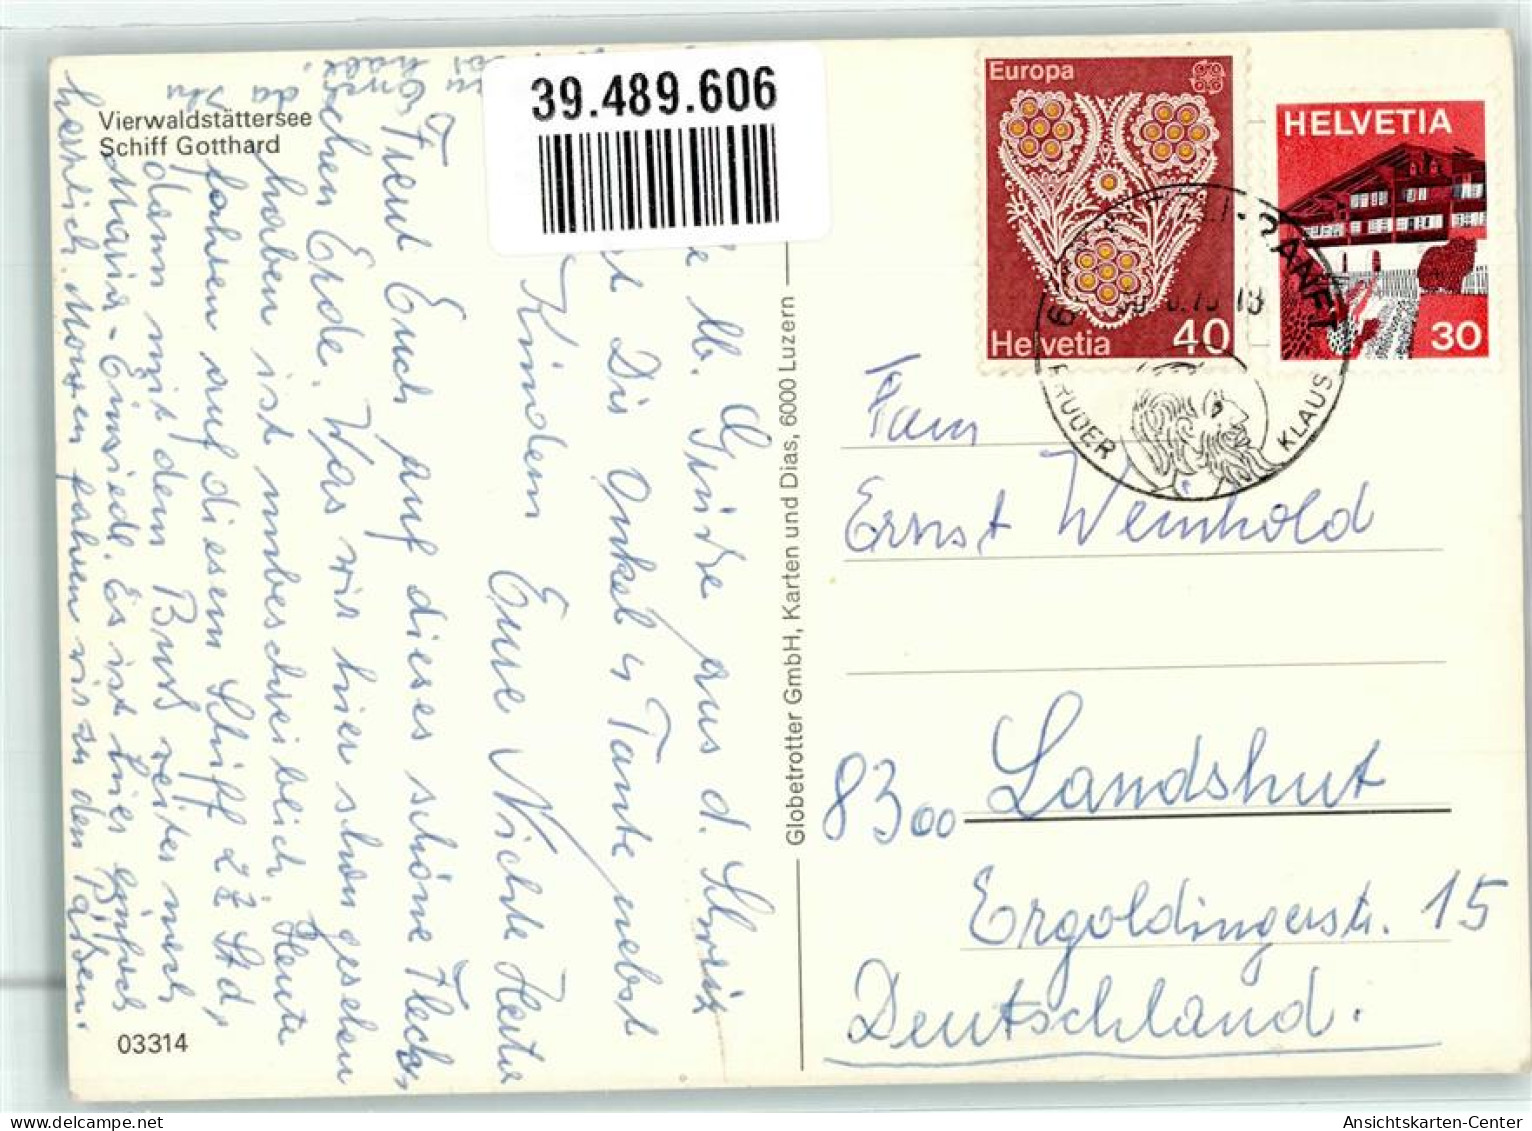 Vierwaldstättersee
Schiff Gotthard
39.489.606
Europa
Helvetia 40
HELVETIA
30
RANFT
BRUDER KLAUS
Grüße aus d. Schweiz
Dir Onkel u Tante nebst
Kinden Eure Nichte
Freut Euch auf dieses schöne Fleck
chen Erde. Was wir hier schon gesehen
haben ist unbeschreiblich. Heute
fahren auf diesem Schiff 2 ½ Std,
dann mit dem Bus weiter nach
Maria-Einsiedl. Es ist hier einfach
herrlich. Morgen fahren wir zu den Pässen.
Globetrotter GmbH, Karten und Dias, 6000 Luzern
03314
Fam
Ernst Weinhold
8300 Landshut
Ergoldingerstr. 15
Deutschland.
Ansichtskarten-Center